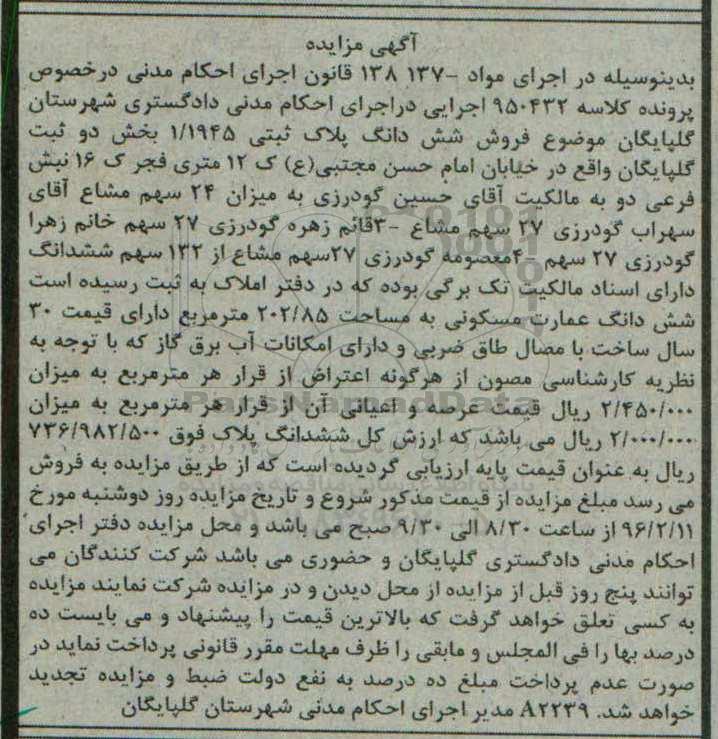 آگهی مزایده
بدینوسیله در اجرای مواد -۱۳۷ ۱۳۸ قانون اجرای احکام مدنی درخصوص
پرونده کلاسه ۹۵۰۴۳۲ اجرایی دراجرای احکام مدنی دادگستری شهرستان
گلپایگان موضوع فروش شش دانگ پلاک ثبتی ۱/۱۹۴۵ بخش دو ثبت
گلپایگان واقع در خیابان امام حسن مجتبی(ع) ک ۱۲ متری فجر ک ۱۶ نبش
فرعی دو به مالکیت آقای حسین گودرزی به میزان ۲۴ سهم مشاع آقای
سهراب گودرزی ۲۷ سهم مشاع -۳قائم زهره گودرزی ۲۷ سهم خانم زهرا
گودرزی ۲۷ سهم -۴معصومه گودرزی ۲۷سهم مشاع از ۱۳۲ سهم ششدانگ
دارای اسناد مالکیت تک برگی بوده که در دفتر املاک به ثبت رسیده است
شش دانگ عمارت مسکونی به مساحت ۲۰۲/۸۵ مترمربع دارای قیمت ۳۰
سال ساخت با مصال طاق ضربی و دارای امکانات آب برق گاز که با توجه به
نظریه کارشناسی مصون از هرگونه اعتراض از قرار هر مترمربع به میزان
۲/۴۵۰/۰۰۰ ریال قیمت عرصه و اعیانی آن از قرار هر مترمربع به میزان
۲/۰۰۰/۰۰۰ ریال می باشد که ارزش کل ششدانگ پلاک فوق ۷۳۶/۹۸۲/۵۰۰
ریال به عنوان قیمت پایه ارزیابی گردیده است که از طریق مزایده به فروش
می رسد مبلغ مزایده از قیمت مذکور شروع و تاریخ مزایده روز دوشنبه مورخ
۹۶/۲/۱۱ از ساعت ۸/۳۰ الی ۹/۳۰ صبح می باشد و محل مزایده دفتر اجرای
احکام مدنی دادگستری گلپایگان و حضوری می باشد شرکت کنندگان می
توانند پنج روز قبل از مزایده از محل دیدن و در مزایده شرکت نمایند مزایده
به کسی تعلق خواهد گرفت که بالاترین قیمت را پیشنهاد و می بایست ده
درصد بها را فی المجلس و مابقی را ظرف مهلت مقرر قانونی پرداخت نماید در
صورت عدم پرداخت مبلغ ده درصد به نفع دولت ضبط و مزایده تجدید
خواهد شد. A۲۲۳۹ مدیر اجرای احکام مدنی شهرستان گلپایگان
ParsNamadData